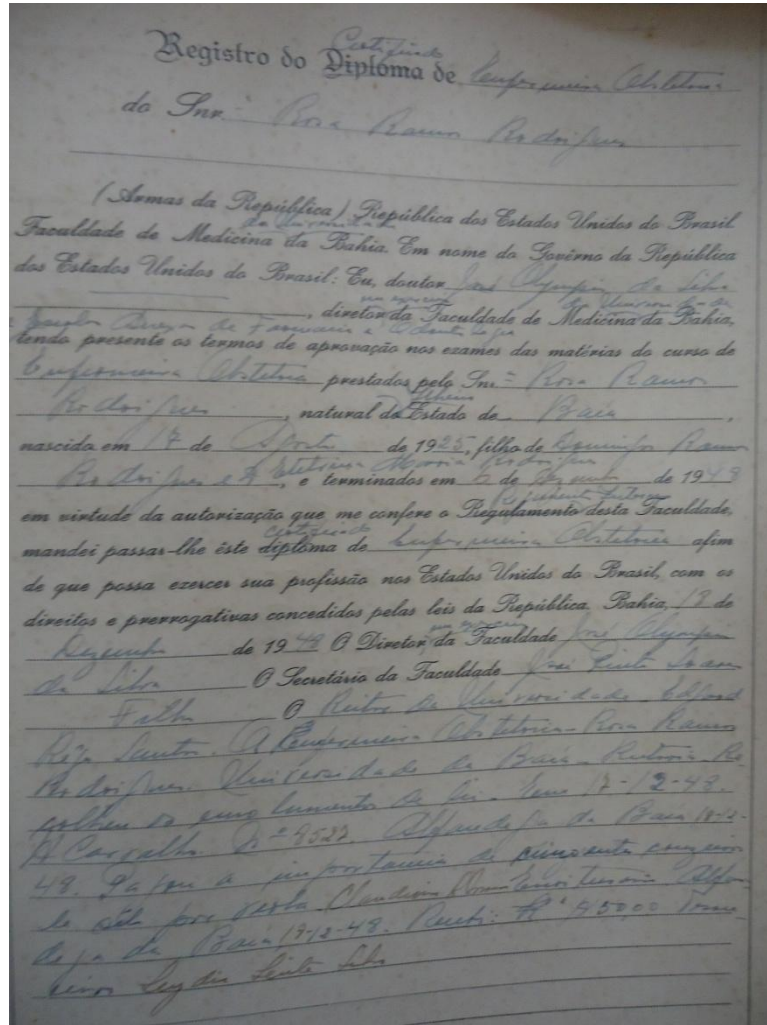 Registro do Diploma de Enfermeira Obstetrica
Certificado
do Snr. Rosa Ramos Rodrigues
(Armas da República) República dos Estados Unidos do Brasil
Faculdade de Medicina da Bahia. Em nome do Govêrno da República
da Universidade
dos Estados Unidos do Brasil: Eu, doutor José Olympio da Silva
, diretor da Faculdade de Medicina da Bahia,
em exercicio da Universidade da
Escola Anexa de Farmacia e Odontologia
tendo presente os termos de aprovação nos exames das matérias do curso de
Enfermeira Obstetrica prestados pelo Snr. Rosa Ramos
Rodrigues , natural do Estado de Baía ,
nascido em 17 de Agosto de 1925, filho de Domingos Ramos
Rodrigues e D. Maria Rodrigues , e terminados em de Dezembro de 1948
em virtude da autorização que me confere o Regulamento desta Faculdade,
certificado
mandei passar-lhe êste diploma de Enfermeira Obstetrica afim
de que possa exercer sua profissão nos Estados Unidos do Brasil, com os
direitos e prerrogativas concedidos pelas leis da República. Bahia, 18 de
em exercicio
Dezembro de 1948 O Diretor da Faculdade José Olympio
da Silva O Secretário da Faculdade José Pinto Soares
Filho O Reitor da Universidade Edgard
Rêgo Santos. A Enfermeira Obstetrica - Rosa Ramos
Rodrigues. Universidade da Baía - Reitoria - Re-
colheu os emolumentos de lei - Em 17-12-48.
A Carvalho. Nº 8527. Alfandega da Baía 18-12-
48. Pagou a importancia de cincoenta cruzeiros
de sêlo por verba Alfan-
dega da Baía 18-12-48. Recebi: 50,00